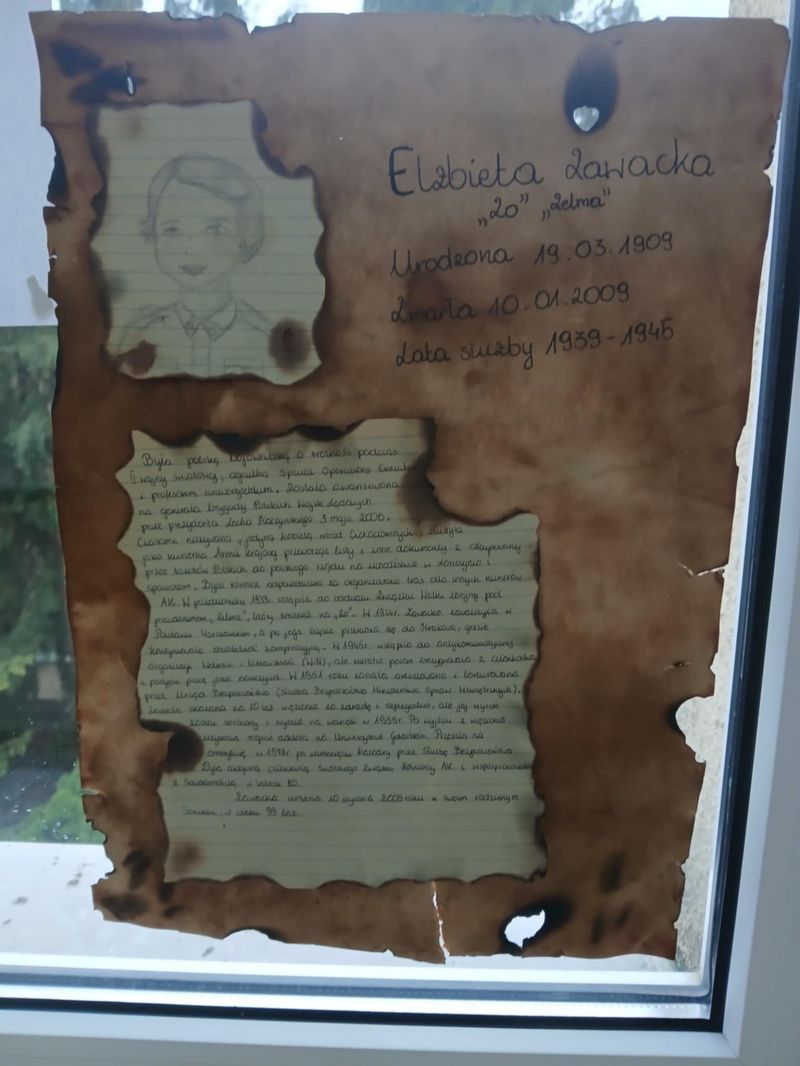 Elżbieta Zawacka
„Zo" „Zelma"
Urodzona 19.03.1909
Zmarła 10.01.2009
Lata służby 1939-1945
Była polską bojowniczką o wolność podczas
II wojny światowej, agentką Special Operations Execut
i profesorem uniwersytetu. Została awansowana
na generała brygady Polskich Wojsk Lądowych
przez prezydenta Lecha Kaczyńskiego 3 maja 2006.
Czasami nazywana „jedyną kobietą wśród Cichociemnych", służyła
jako kurierka Armii Krajowej przewożąc listy i inne dokumenty z okupowanej
przez Polskich do polskiego rządu na uchodźstwie w Londynie i
spowrotem. Była również odpowiedzialna za organizowanie tras dla innych kurierów
AK. W październiku 1939. wstąpiła do oddziału Związku Walki Zbrojnej pod
pseudonimem „Zelma", który zmieniła na „Zo". W 1944r. Zawacka walczyła w
Powstaniu Warszawskim, a po jego upadku przeniosła się do Krakowa, gdzie
kontynuowała działalność konspiracyjną. W 1945r. wstąpiła do antykomunistycznej
organizacji Wolność i Niezawisłość (WiN), ale wkrótce potem zrezygnowała z członkostwa
i podjęła pracę jako nauczyciel. W 1951 roku została aresztowana i torturowana
przez Urząd Bezpieczeństwa (Służba Bezpieczeństwa Ministerstwa Spraw Wewnętrznych).
Została skazana na 10 lat więzienia za zdradę i szpiegostwo, ale jej wyrok
został skrócony i wyszła na wolność w 1955r. Po wyjściu z więzienia
uzyskała stopień doktora na Uniwersytecie Gdańskim. Przeszła na
emeryturę w 1978r. po zamknięciu katedry przez Służbę Bezpieczeństwa.
Była aktywną członkinią Światowego Związku Żołnierzy AK i współpracowała
z Solidarnością w latach 80.
Zawacka umarła 10 stycznia 2009 roku w swoim rodzinnym
Toruniu, w wieku 99 lat.